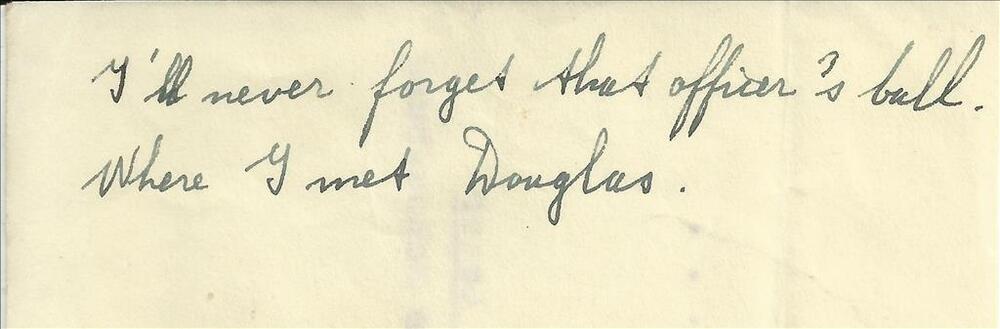 I'll never forget that officer's ball.
Where I met Douglas.